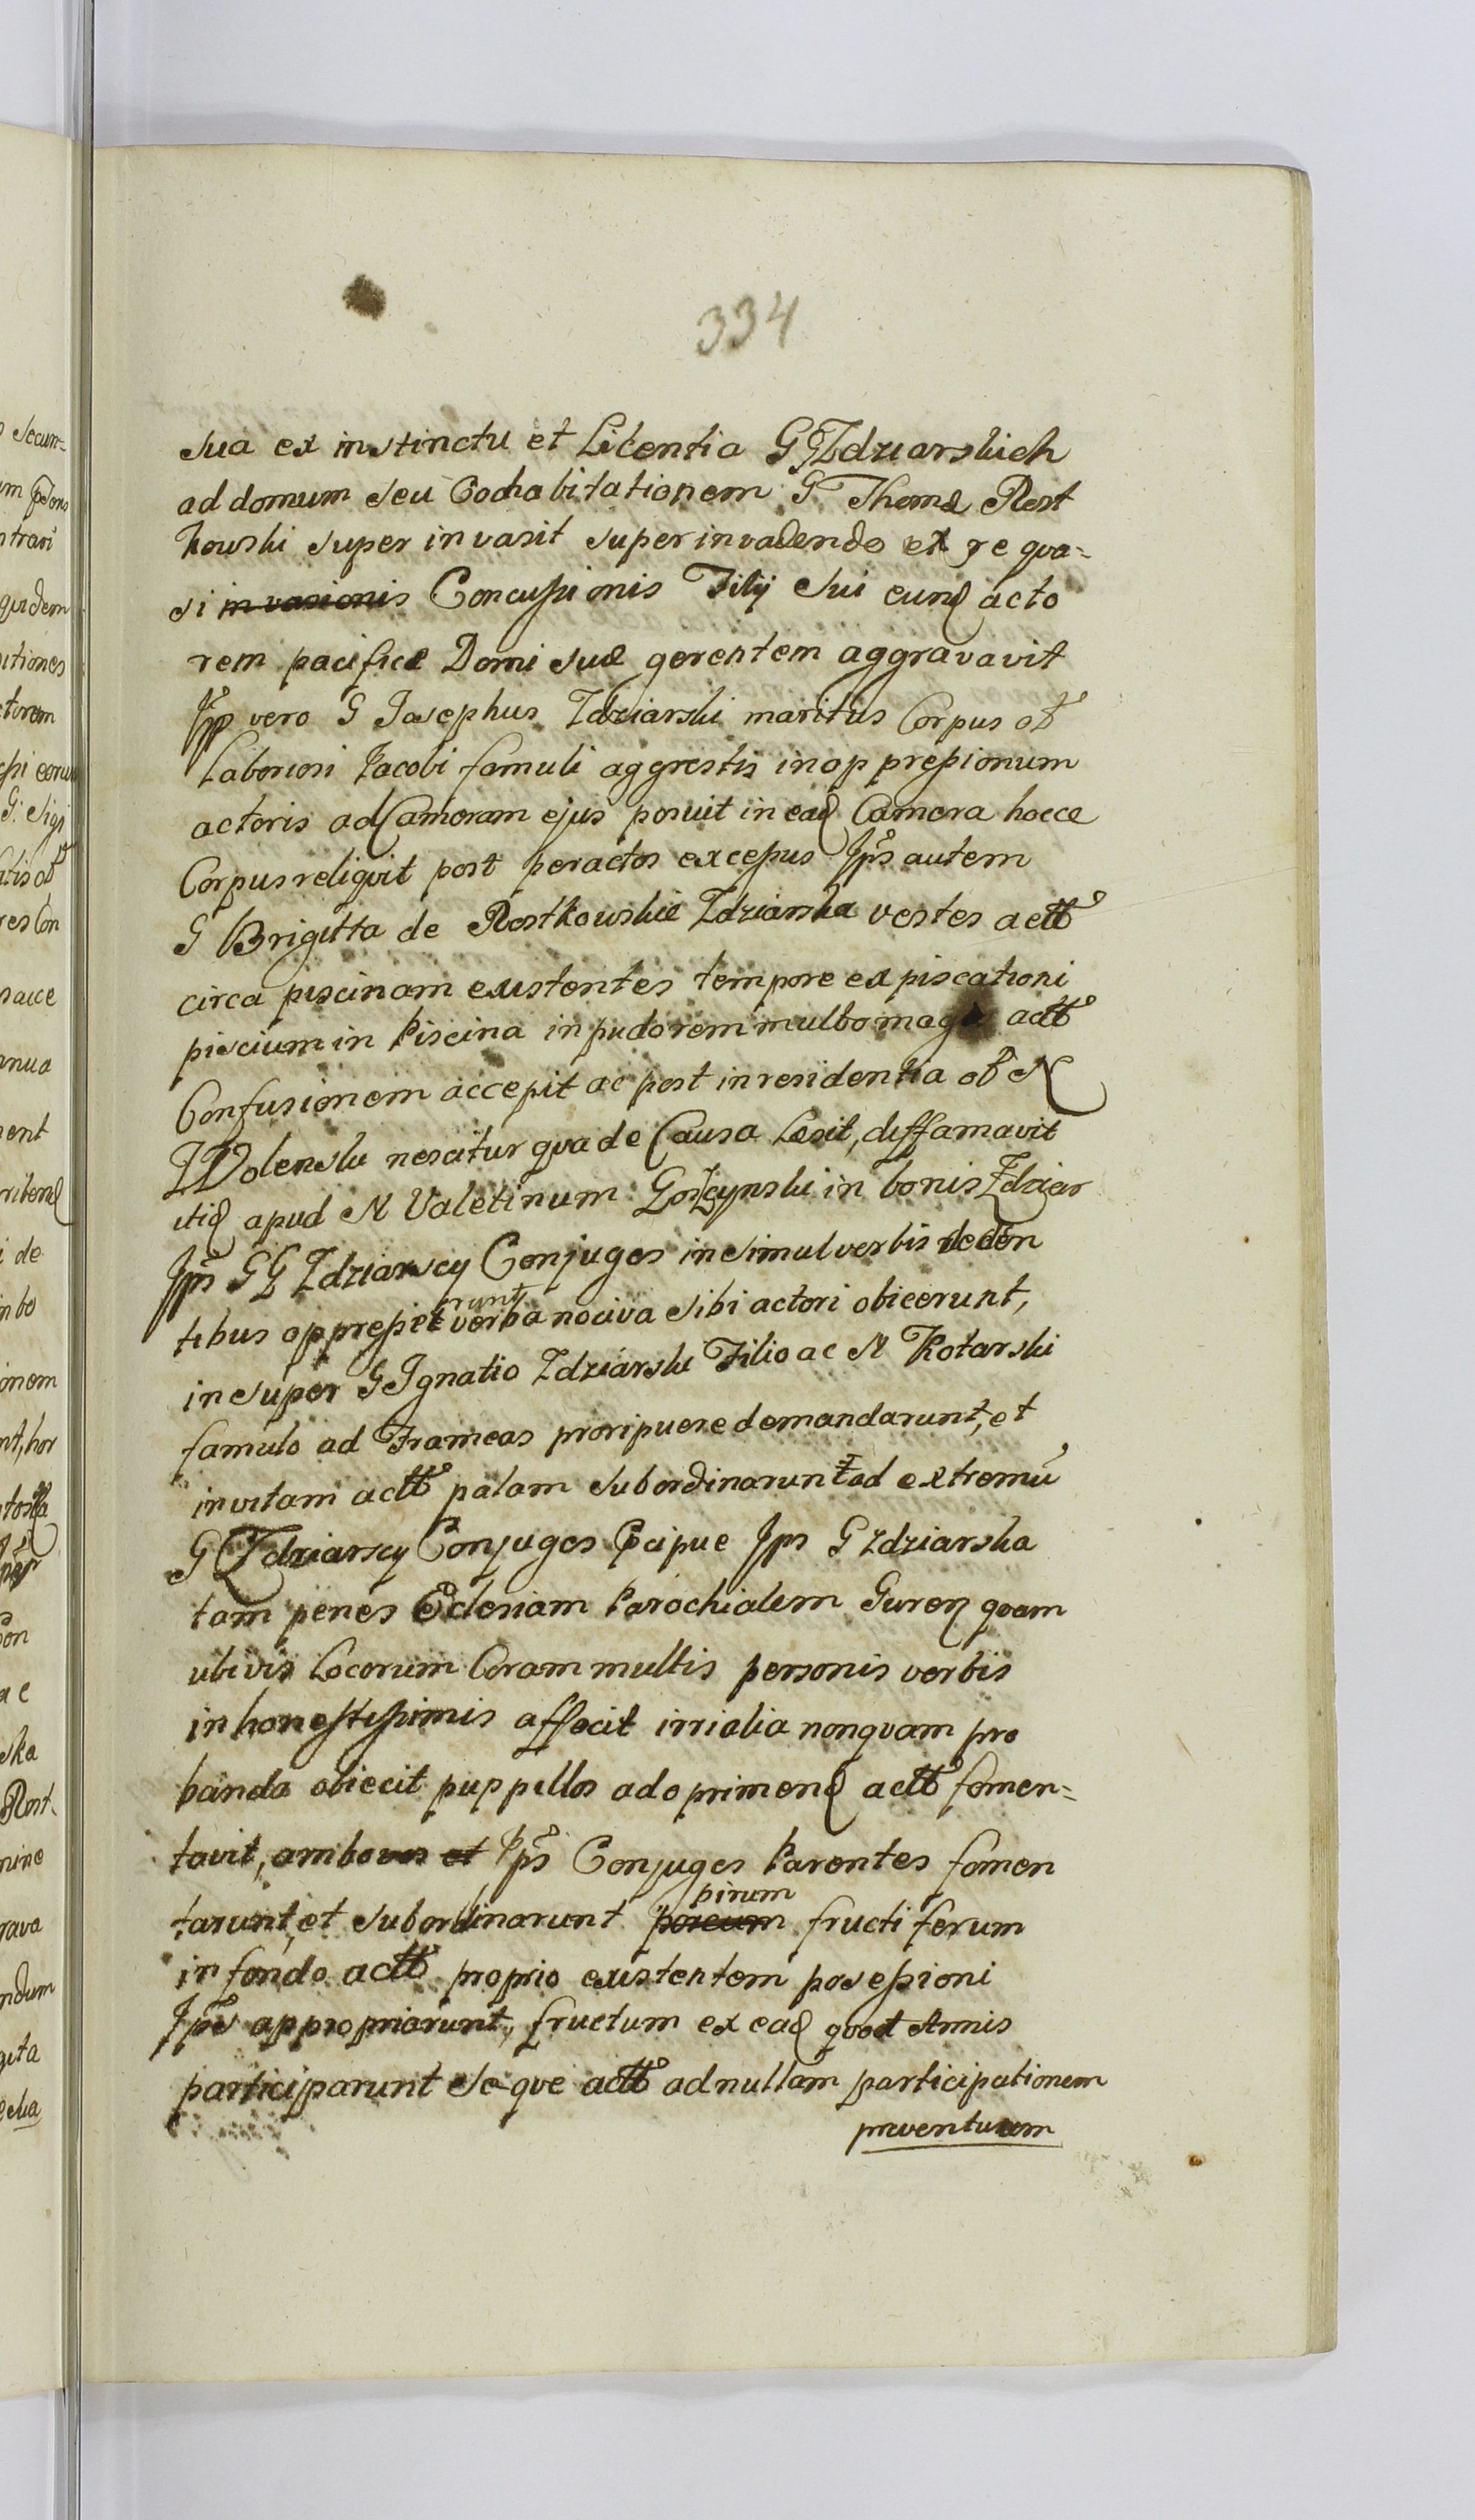 334
sua ex instinctu et Licentia GG Zdziarskich
ad domum seu Cochabitationem G Thomæ Rost
kowski super invasit super invadendo et re qva-
si invasionis Concussionis Filij sui eund acto
rem pacificæ Domi suæ gerentem aggravavit
Ips vero G Josephus Zdziarski maritus Corpus ol
Laboriosi Jacobi famuli aggrestis in oppressionum
actoris ad Cameram ejus posuit in ead Camera hocce
Corpus reliqvit post peractos excessus Ips autem
G Brigitta de Rostkowskie Zdziarska vestes actt
circa piscinam existentes tempore expiscationi
piscium in Piscina in pudorem multo mag actt
Confusionem accepit ac post in residentia ol N
Wolenski nescitur qva de Causa Læsit, diffamavit
itid apud N Valetinum Goszczynski in bonis Zdziar
Ips GG Zdziarscy Conjuges insimul verbis deden
runt
tibus oppresse verba nociva sibi actori obicerunt,
insuper G Ignatio Zdziarski Filio ac N Kotarski
famulo ad Frameas proripuere demandarunt, et
invitam actt palam subordinarunt ad extremū
G Zdziarscy Conjuges Pcipue Ips G Zdziarska
tam penes Eclesiam Parochialem Guren qvam
ubivis Locorum Coram multis personis verbis
inhonestissimis affecit irrialia nonqvam pro
banda obiecit puppillos ad oprimend actt fomen-
tavit, ambo et Ips Conjuges Parentes fomen
pirum
tarunt, et subordinarunt porcum fructiferum
in fondo actt proprio existentem possessioni
Ips appropriarunt, fructum ex ead qvot Annis
participarunt seqve actt ad nullam participationem
preventuum